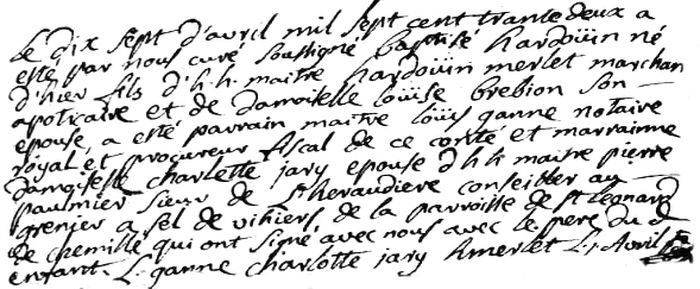 Le dix sept d'avril mil sept cent trante deux a
esté par nous curé soussigné baptisé hardoüin né
d'hier fils d'h.h. maitre hardoüin merlet marchan
apoticaire et de damoiselle loüise brebion son
epouse, a esté parrain maitre loüis ganne notaire
royal et procureur fiscal de ce comté et marrainne
damoiselle charlotte jary epouse d'h.h. maitre pierre
paulmier sieur de heraudiere conseiller au
grenier a sel de vihiers de la parroisse de St leonard
de chemillé qui ont signé avec nous avec le pere du d
enfant. L. ganne charlotte jary Amerlet